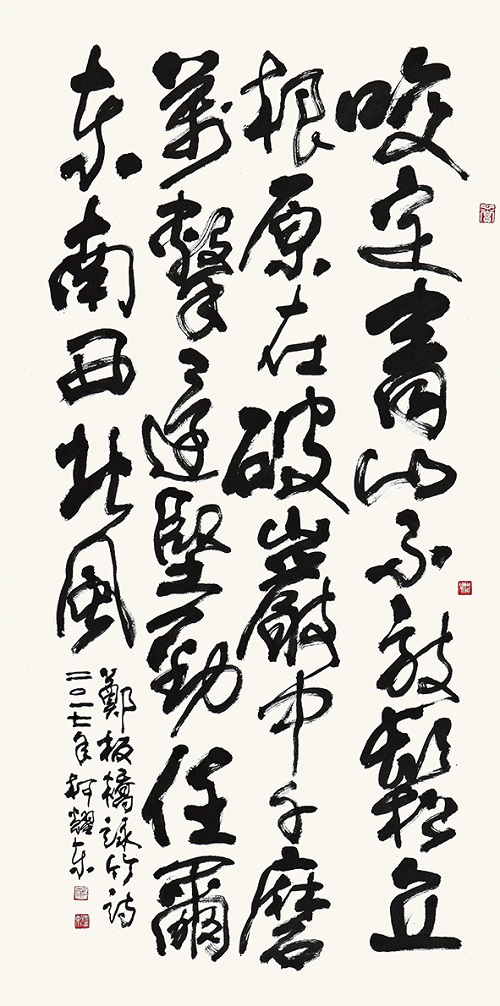 咬定青山不放鬆立
根原在破巖中千磨
萬擊還堅勁任爾
東南西北風
鄭板橋詠竹詩
二〇一七年柯耀東